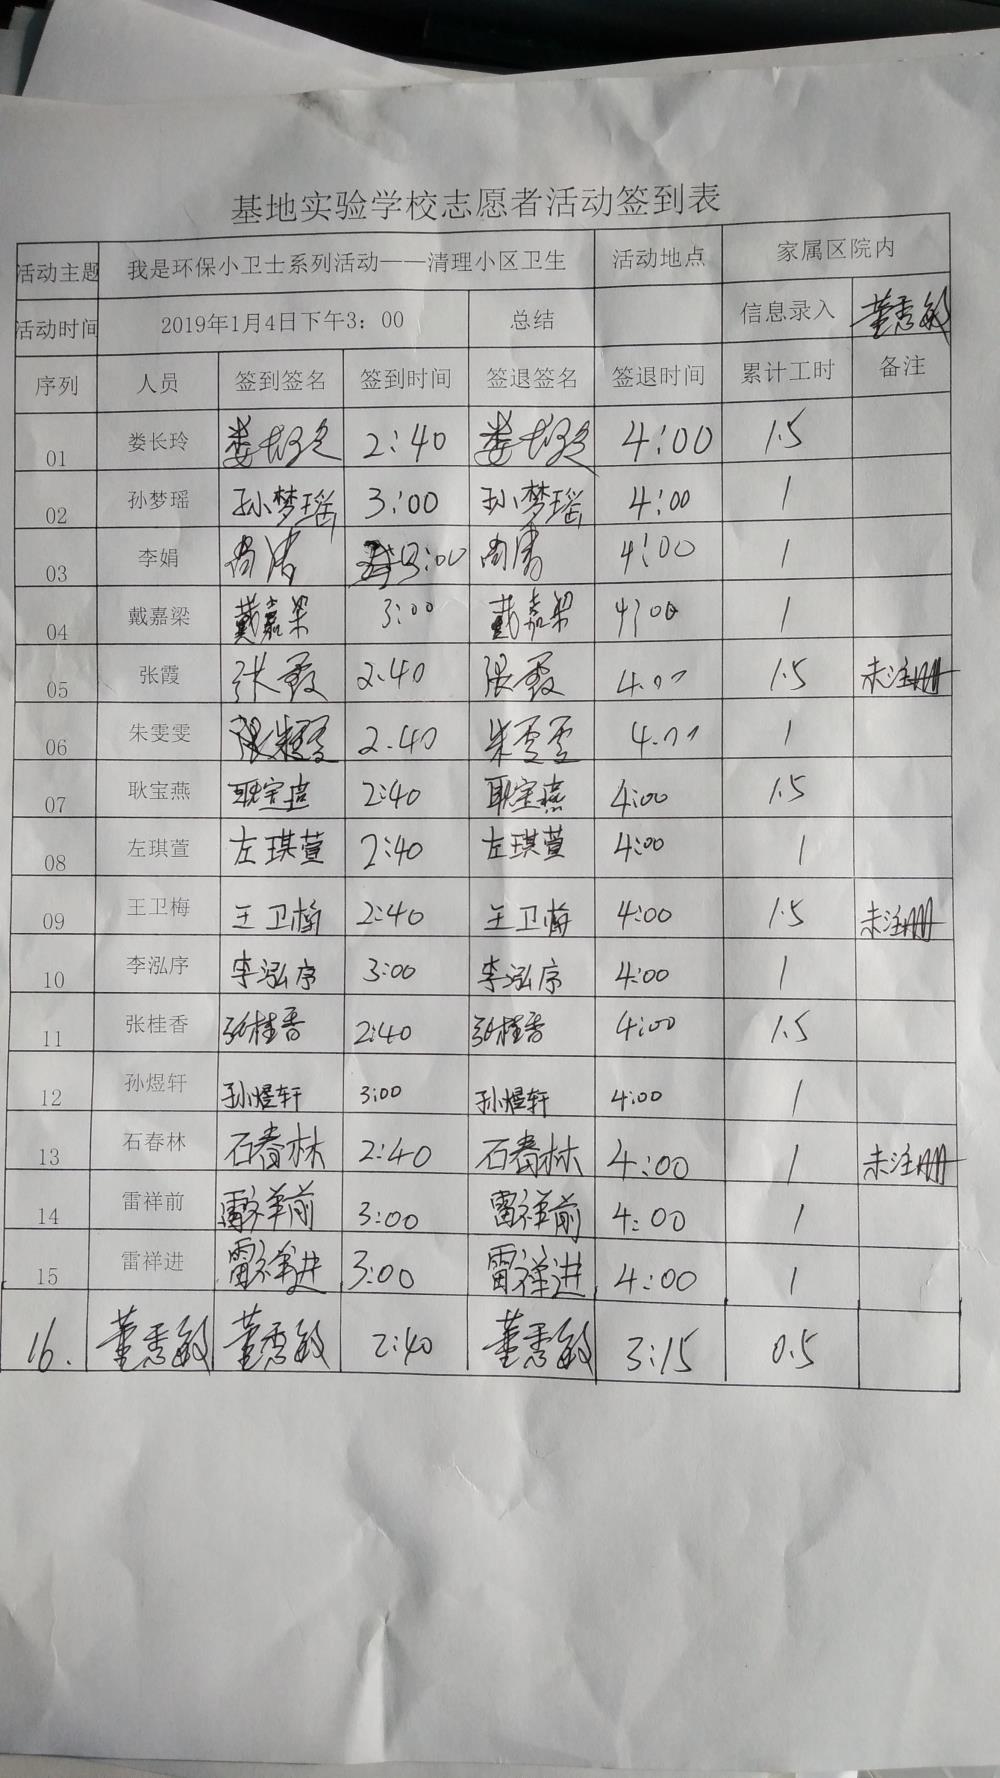 基地实验学校志愿者活动签到表
活动主题 我是环保小卫士系列活动——清理小区卫生 活动地点 家属区院内
活动时间 2019年1月4日下午3：00 总结 信息录入 董秀敏
序列 人员 签到签名 签到时间 签退签名 签退时间 累计工时 备注
01 娄长玲 娄长玲 2:40 娄长玲 4:00 1.5
02 孙梦瑶 孙梦瑶 3:00 孙梦瑶 4:00 1
03 李娟 3:00 4:00 1
04 戴嘉梁 戴嘉梁 3:00 戴嘉梁 4:00 1
05 张霞 张霞 2.40 张霞 4.00 1.5 未注册
06 朱雯雯 2.40 朱雯雯 4.00 1
07 耿宝燕 耿宝燕 2:40 耿宝燕 4:00 1.5
08 左琪萱 左琪萱 2:40 左琪萱 4:00 1
09 王卫梅 王卫梅 2:40 王卫梅 4:00 1.5 未注册
10 李泓序 李泓序 3:00 李泓序 4:00 1
11 张桂香 张桂香 2:40 张桂香 4:00 1.5
12 孙煜轩 孙煜轩 3:00 孙煜轩 4:00 1
13 石春林 石春林 2:40 石春林 4:00 1 未注册
14 雷祥前 雷祥前 3:00 雷祥前 4:00 1
15 雷祥进 雷祥进 3:00 雷祥进 4:00 1
16. 董秀敏 董秀敏 2:40 董秀敏 3:15 0.5